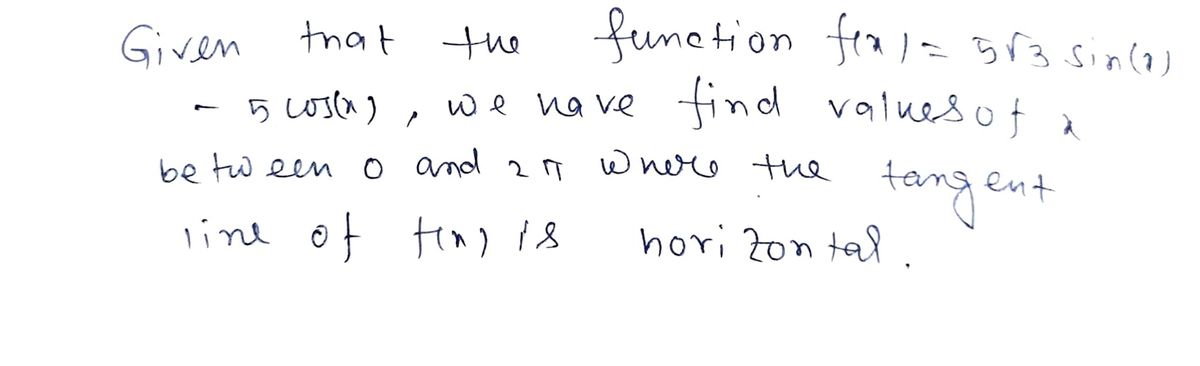 Given that the function f(x) = 5√3 sin(x)
- 5 cos(x) , we have find values of x
between 0 and 2π where the tangent
line of f(x) is horizontal .